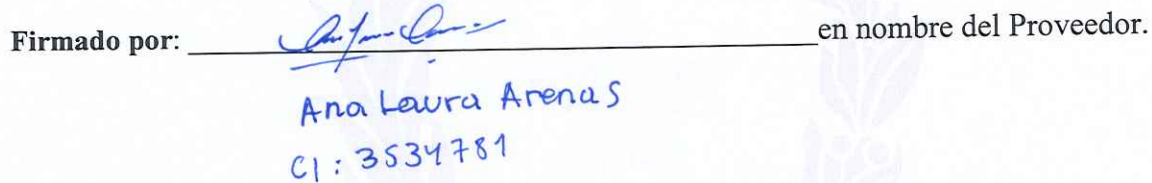 Firmado por: en nombre del Proveedor.
Ana Laura Arenas
CI: 3534781